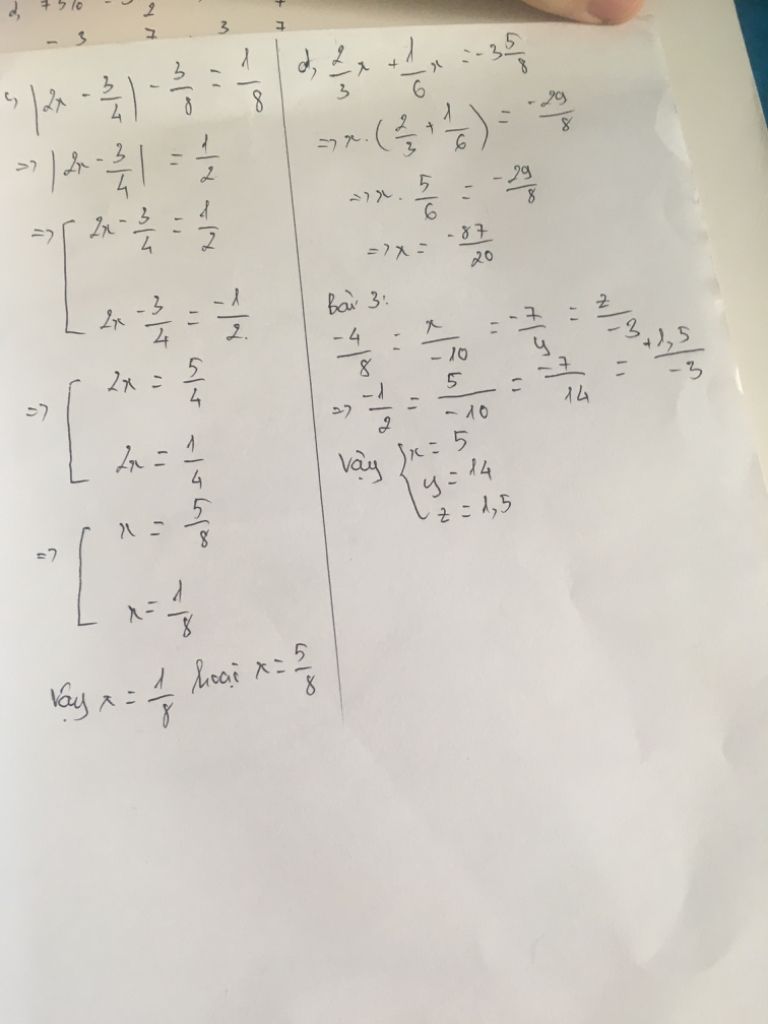 - 3 7 3 7
c, |2x - 3/4| - 3/8 = 1/8
=> |2x - 3/4| = 1/2
=> [ 2x - 3/4 = 1/2
2x - 3/4 = -1/2.
=> [ 2x = 5/4
2x = 1/4
=> [ x = 5/8
x = 1/8
Vậy x = 1/8 hoặc x = 5/8
d, 2/3 x + 1/6 x = -3 5/8
=> x . (2/3 + 1/6) = -29/8
=> x . 5/6 = -29/8
=> x = -87/20
Bài 3:
-4/8 = x/-10 = -7/y = z/-3
=> -1/2 = 5/-10 = -7/14 = +1,5/-3
Vậy { x = 5
y = 14
z = 1,5